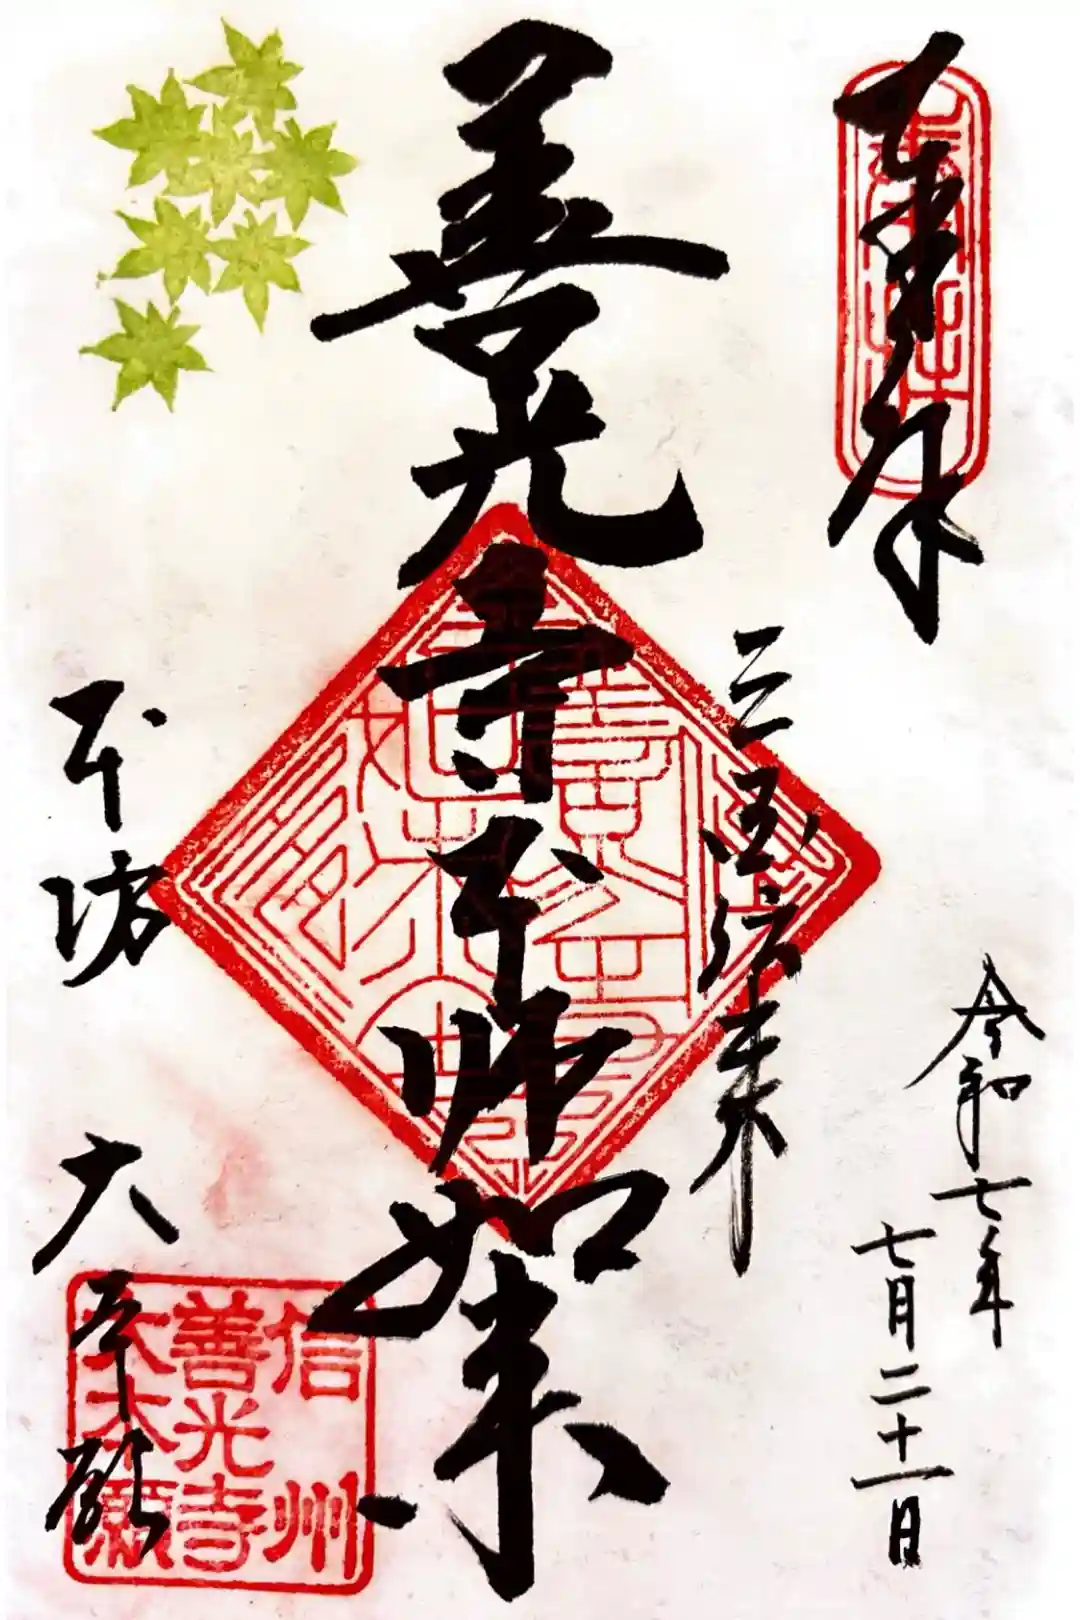 奉拝
令和七年
七月二十一日
三国伝来
善光寺本師如来
本坊
大本願
信州
善光寺
大本願